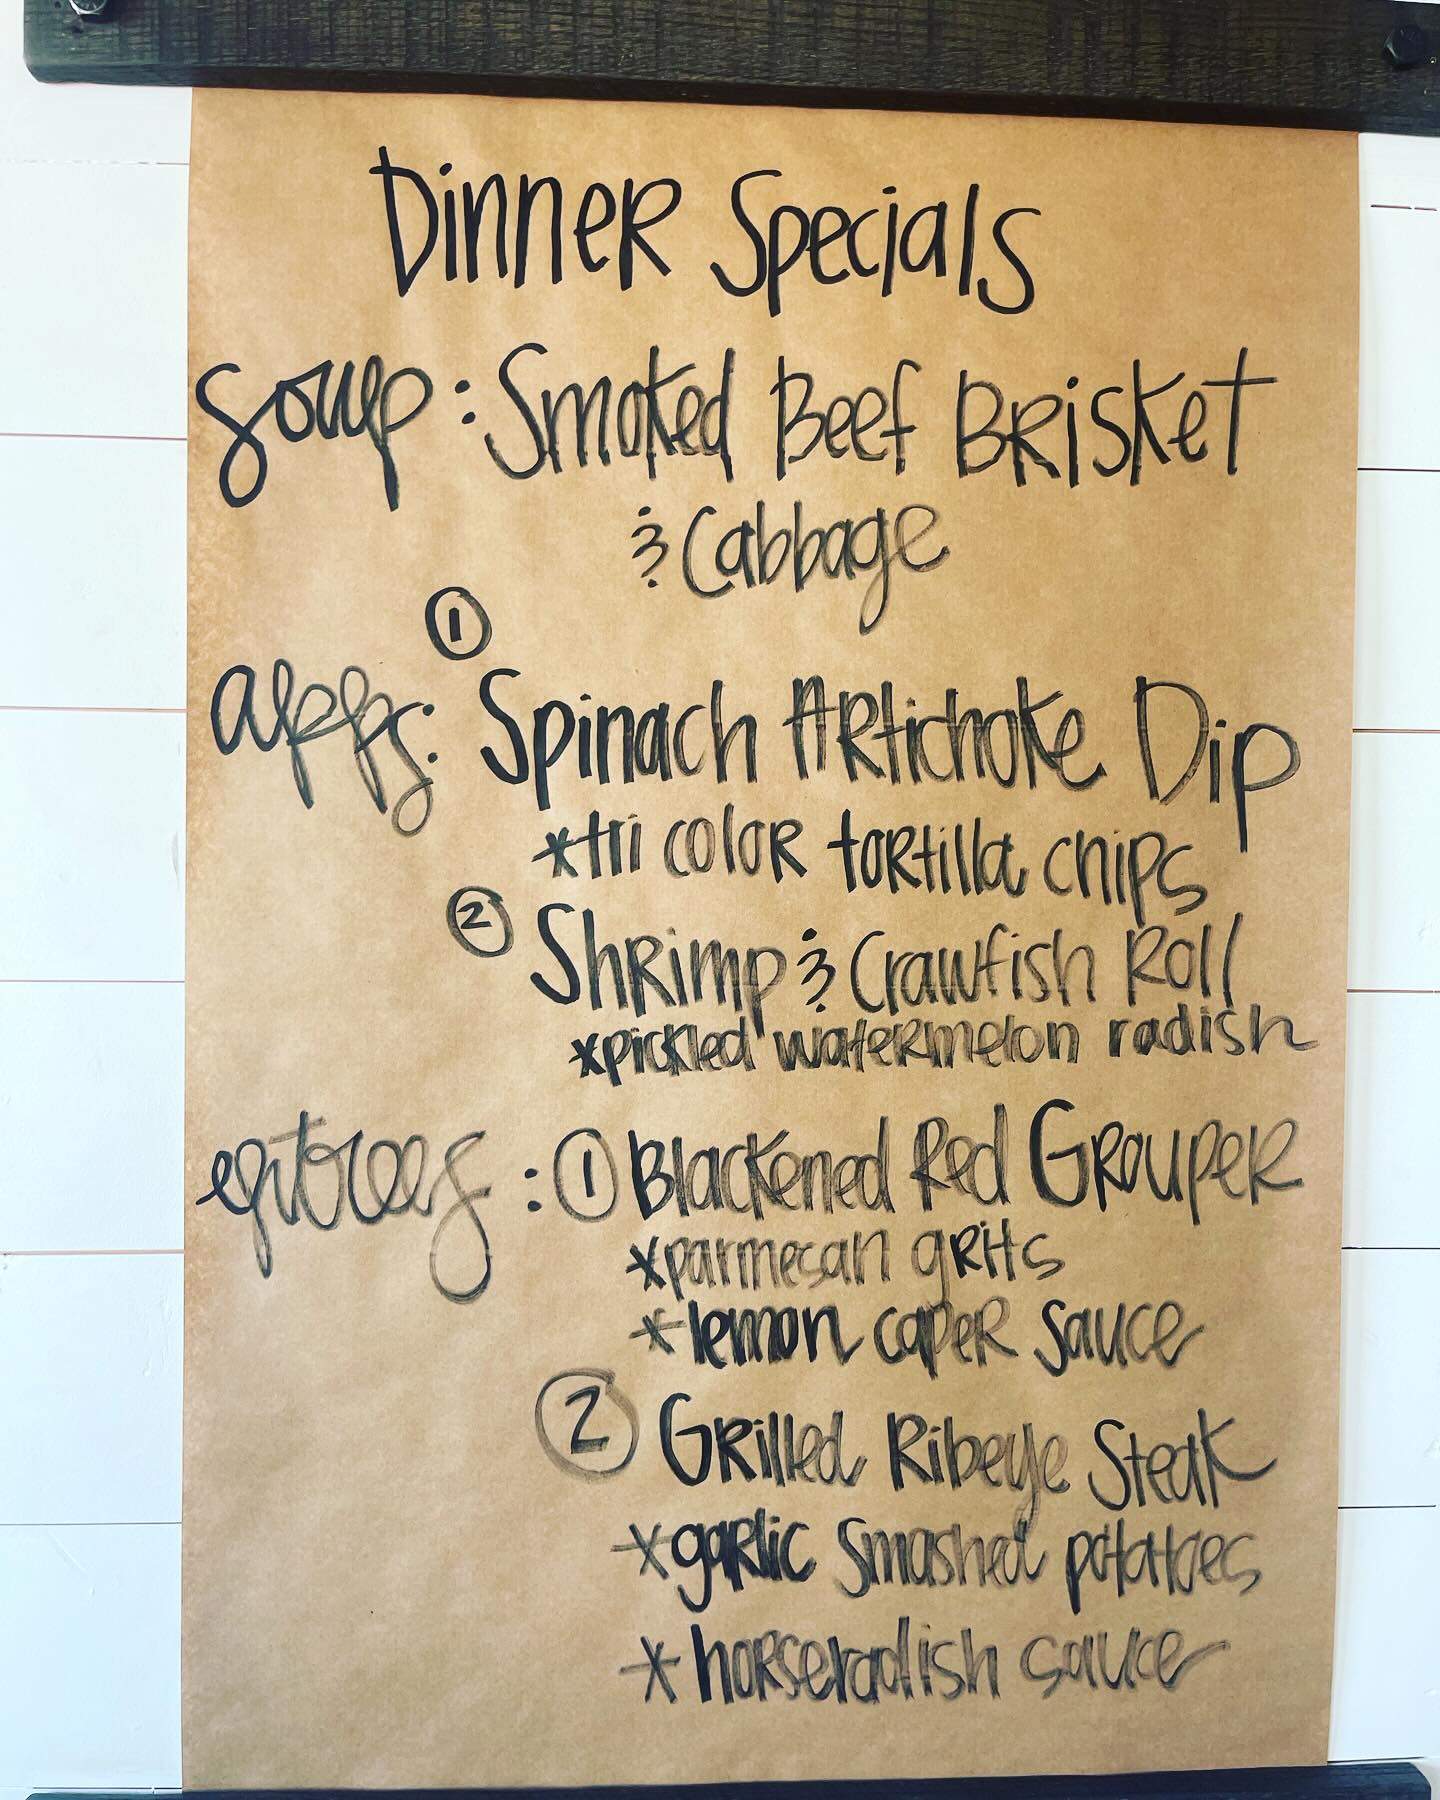 Dinner Specials
Soup: Smoked Beef Brisket
& Cabbage
①
apps: Spinach Artichoke Dip
*tri color tortilla chips
② Shrimp & Crawfish Roll
*pickled watermelon radish
entrees: ① Blackened Red Grouper
*parmesan grits
*lemon caper sauce
② Grilled Ribeye Steak
*garlic smashed potatoes
*horseradish sauce